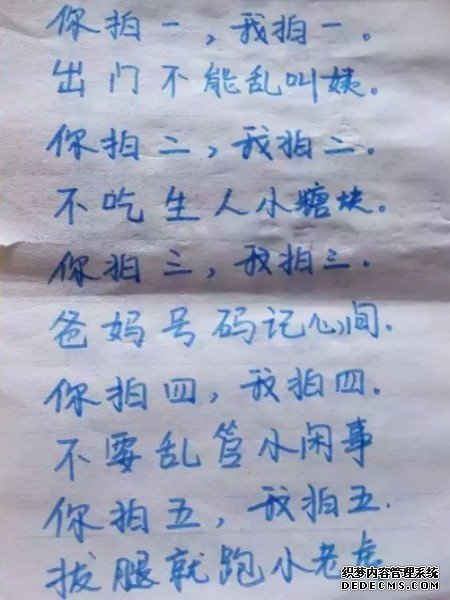 你拍一，我拍一。
出门不能乱叫姨。
你拍二，我拍二。
不吃生人小糖块。
你拍三，我拍三.
爸妈号码记心间.
你拍四，我拍四.
不要乱管小闲事
你拍五，我拍五.
拔腿就跑小老虎
织梦内容管理系统
DEDECMS.COM